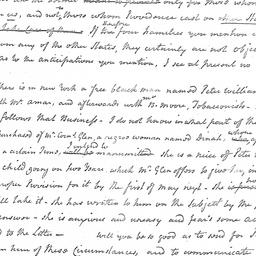 only for those whom
us, and not those whom Providence cast on
If the four families you mention
any of the other States, they certainly are not objec
the anticipations you mention, I see at present no
here is in new york a free black man named Peter William
with Mr. amar, and afterwards with Mr. Moore, Tobacconist.
follows that Business. I do not know in what part of the
purchased of Mr. Corns. Glen, a negro woman named Dinah.
a certain time, she is a niece of Peter
child going on two Years which Mr. Glen offers to give her, in
proper Provision for it by the first of May next. She
will take it. She has written to him on the subject by the
answer. She is anxious and uneasy and fears some
to the Letter — will you be so good as to send for
him of these Circumstances, and to communicate